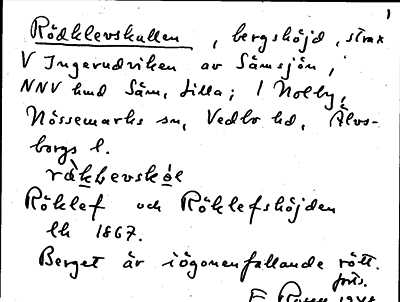 1
Rödklevskullen, bergshöjd, strax
V Ingerudviken av Sämsjön,
NNV hmd Säm, Lilla; / Nolby,
Nössemarks sn, Vedbo hd, Älvs-
borgs l.
Röklef och Röklefshöjden
lk 1867.
Berget är iögonenfallande rött.
forts.